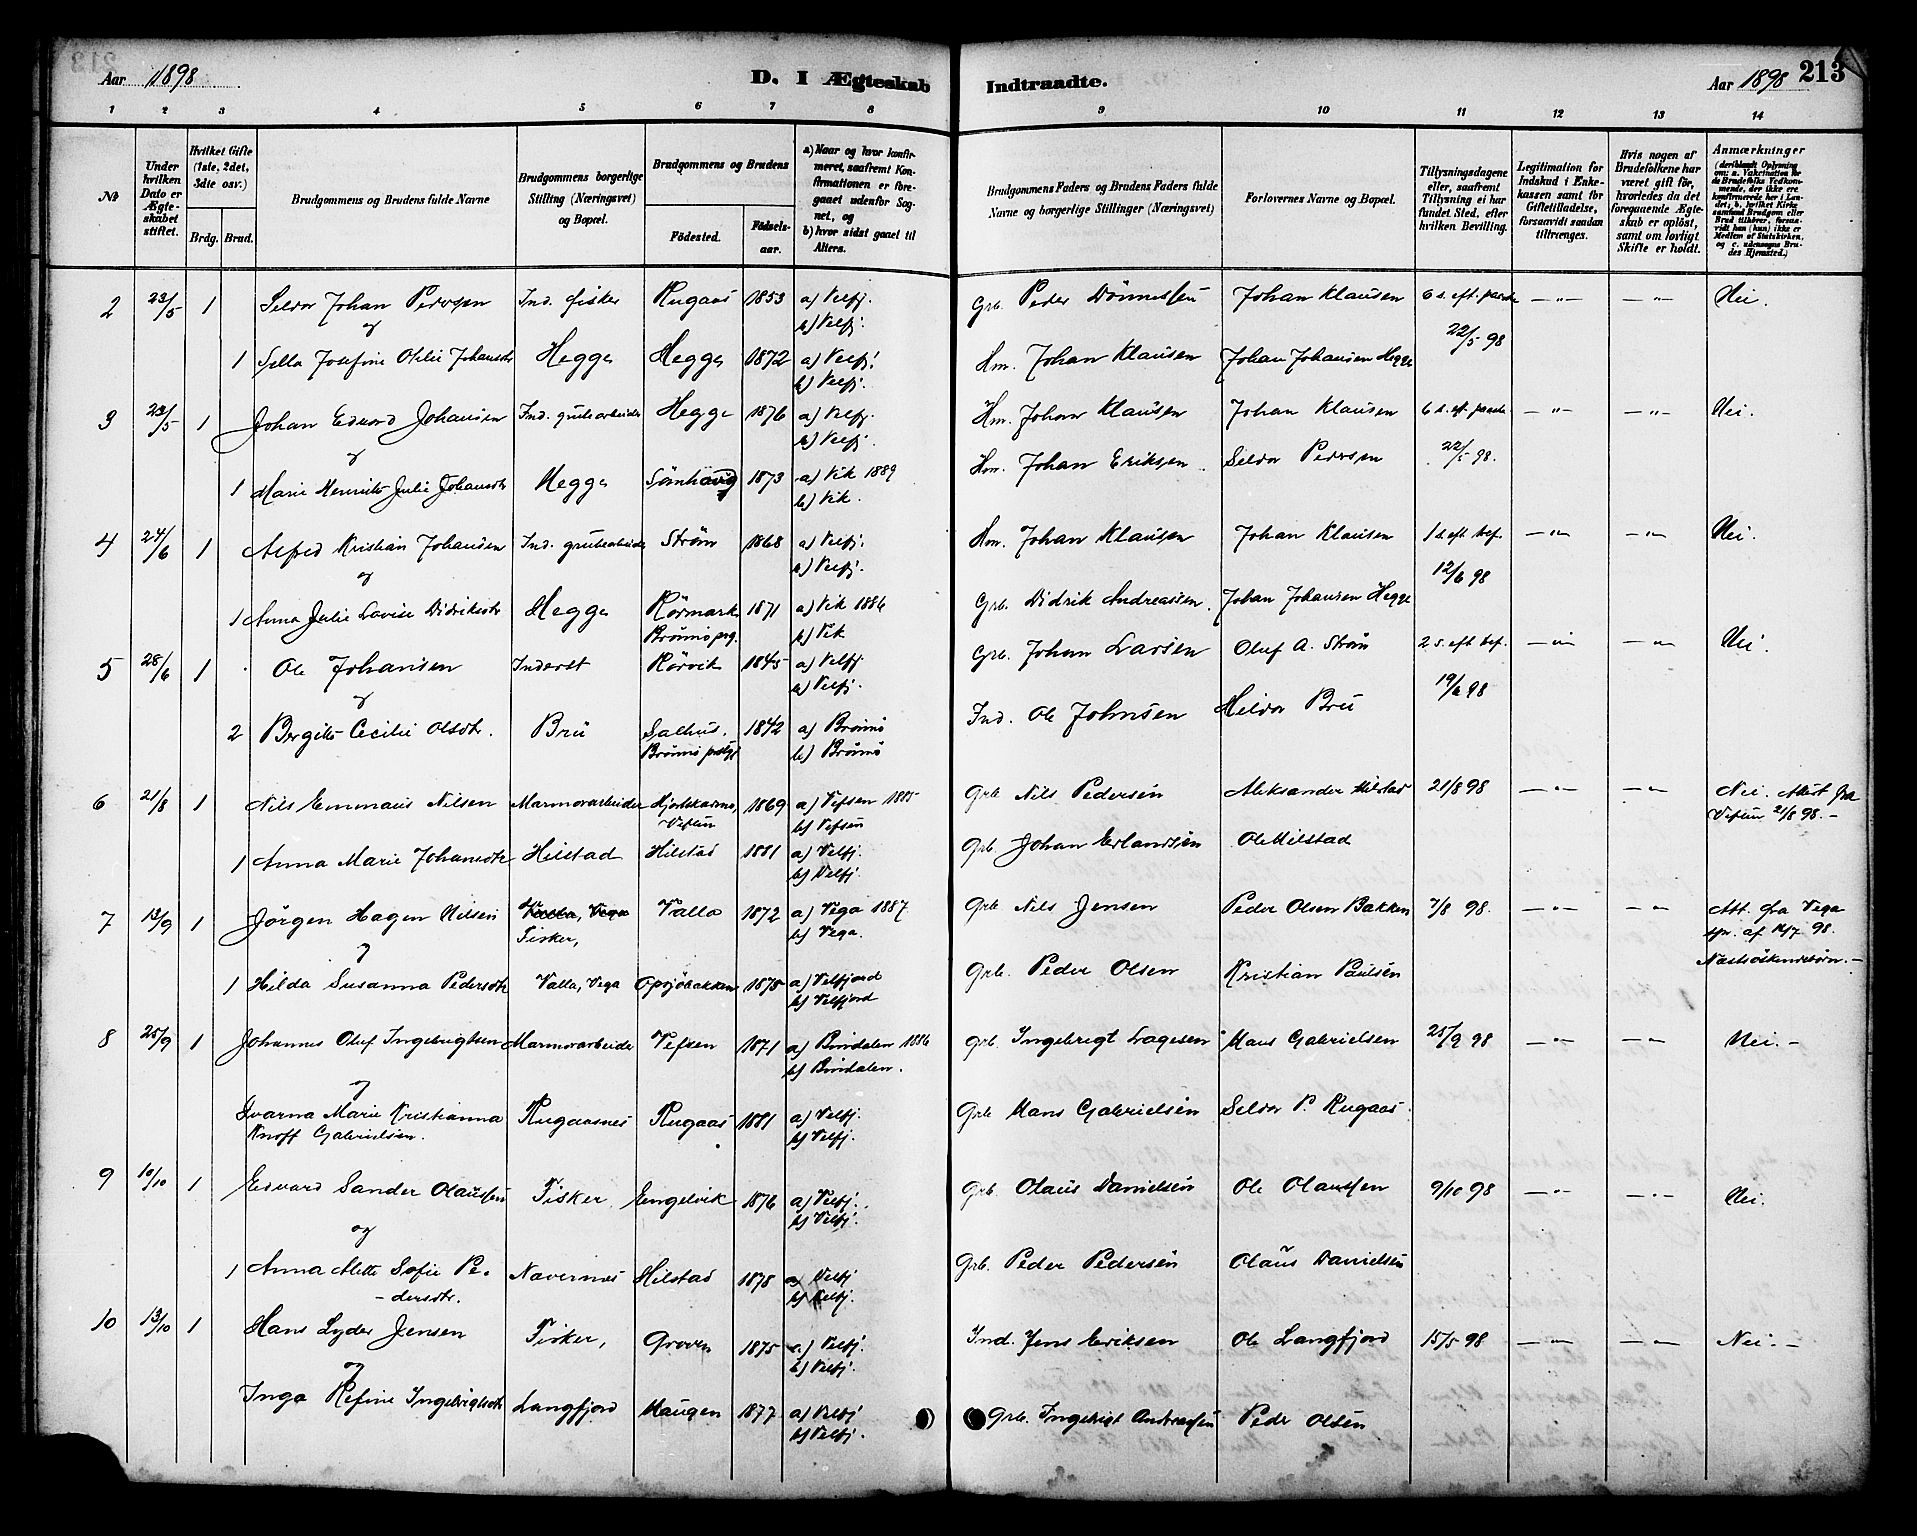 Aar 1898 D. I Ægteskab Indtraadte. Aar 1898 213
1 2 3 4 5 6 7 8 9 10 11 12 13 14
№
Under hvilken Dato er Ægteskabet stiftet.
Hvilket Gifte (1ste, 2det, 3die osv.)
Brdg. Brud.
Brudgommens og Brudens fulde Navne
Brudgommens borgerlige Stilling (Næringsvei) og Bopæl.
Brudgommens og Brudens
Födested. Födselsaar.
a) Naar og hvor konfirmeret, saafremt Konfirmationen er foregaaet udenfor Sognet, og
b) hvor sidst gaaet til Alters.
Brudgommens Faders og Brudens Faders fulde Navne og borgerlige Stillinger (Næringsvei)
Forlovernes Navne og Bopæl.
Tillysningsdagene eller, saafremt Tillysning ei har fundet Sted, efter hvilken Bevilling.
Legitimation for Indskud i Enkekassen samt for Giftetilladelse, forsaavidt saadan tiltrænges.
Hvis nogen af Brudefolkene har været gift før, hvorledes da det foregaaende Ægteskab er oplöst, samt om lovligt Skifte er holdt.
Anmærkninger (deriblandt Oplysning om: a. Vakcination for de Brudefolks Vedkommende, der ikke ere konfirmerede her i Landet; b. hvilket Kirkesamfund Brudgom eller Brud tilhörer, forsaavidt han (hun) ikke er Medlem af Statskirken, og c. udensogns Brudes Hjemsted.)
2 23/5 1 Seldor Johan Pedersen Ind. fisker Rugaas 1853 a) Velfj. b) Velfj. Grb. Peder Dönnessen Johan Klausen 6 s. eft. paaske 22/5 98 — " — — " — Nei.
og
1 Sella Josefine Otilie Johansdtr Hegge Hegge 1872 a) Velfj. b) Velfj. Hm. Johan Klausen Johan Johansen Hegge
3 23/5 1 Johan Edvard Johansen Ind. grubearbeider Hegge 1876 a) Velfj. b) Velfj. Hm. Johan Klausen Johan Klausen 6 s. eft. paaske 22/5 98. — " — — " — Nei.
og
1 Marie Henriette Julie Johansdtr Hegge Sörnhavig 1873 a) Vik 1889 b) Vik. Hm. Johan Eriksen. Seldor Pedersen
4 24/6 1 Alfred Kristian Johansen Ind. grubearbeider Ström 1868 a) Velfj. b) Velfj. Hm. Johan Klausen Johan Klausen 1 s. eft. tref. 12/6 98 — " — — " — Nei.
og
1 Anna Julie Lovise Didriksdtr Hegge Rörmark Brönnö prg. 1871 a) Vik 1886 b) Vik Grb. Didrik Andreassen. Johan Johansen Hegge
5 28/6 1 Ole Johansen Inderst Rörvik 1845 a) Velfj b) Velfj. Grb. Johan Larsen Oluf A. Ström 2 s. eft. tref. 19/6 98 — " — — " — Nei.
og
2 Bergitte Cecilie Olsdtr. Brü Salhus. Brönnö prstgj. 1842 a) Brönnö b) Brönnö Ind. Ole Johnsen Heldor Brü
6 21/8 1 Nils Emmaus Nilsen Marmorarbeider Vefsen 1869 a) Vefsen 1885 b) Vefsen Grb Nils Pedersen Aleksander Hilstad 21/8 98 — " — — " — Nei. Attest fra Vefsen 21/8 98.—
1 Anna Marie Johansdtr Hilstad Hilstad 1881 a) Velfj. b) Velfj. Grb. Johan Erlandsen Ole Hilstad
7 13/9 1 Jörgen Hagen Nilsen Valla, Vega Fisker, Valla 1872 a) Vega 1887 b) Vega. Grb Nils Jensen Peder Olsen Bakken 7/8 98. — " — — " — Att. fra Vega spr. af 14/7 98. Næstsöskendebörn.—
og
1 Hilda Susanna Pedersdtr Valla, Vega Opsjöbakken 1875 a) Velfjord b) Velfjord Grb. Peder Olsen Kristian Paulsen
8 25/9 1 Johannes Oluf Ingebrigtsen Marmorarbeider Vefsen 1871 a) Bindalen 1886 b) Bindalen. Grb. Ingebrigt Lagesen Hans Gabrielsen 25/9 98 — " — — " — Nei.—
og
Ivarna Marie Kristianna Knoff Gabrielsen. Rugaasnes Rugaas 1881 a) Velfj. b) Velfj. Grb Hans Gabrielsen Seldor P. Rugaas.
9 10/10 1 Edvard Sander Olaussen Fisker Engelvik 1876 a) Velfj. b) Velfj. Grb. Olaus Danielsen Ole Olaussen 9/10 98 — " — — " — Nei.
og
1 Anna Alette Sofie Pedersdtr. Nævernes Hilstad 1878 a) Velfj b) Velfj. Grb. Peder Pedersen Olaus Danielsen
10 13/10 1 Hans Lyder Jensen Fisker, Groven 1875 a) Velfj. b) Velfj. Ind. Jens Eriksen Ole Langfjord 15/5 98 — " — — " — Nei.—
og
Inga Refine Ingebrigtsdtr Langfjord Haugen 1877 a) Velfj b) Velfj. Grb. Ingebrigt Andreassen Peder Olsen